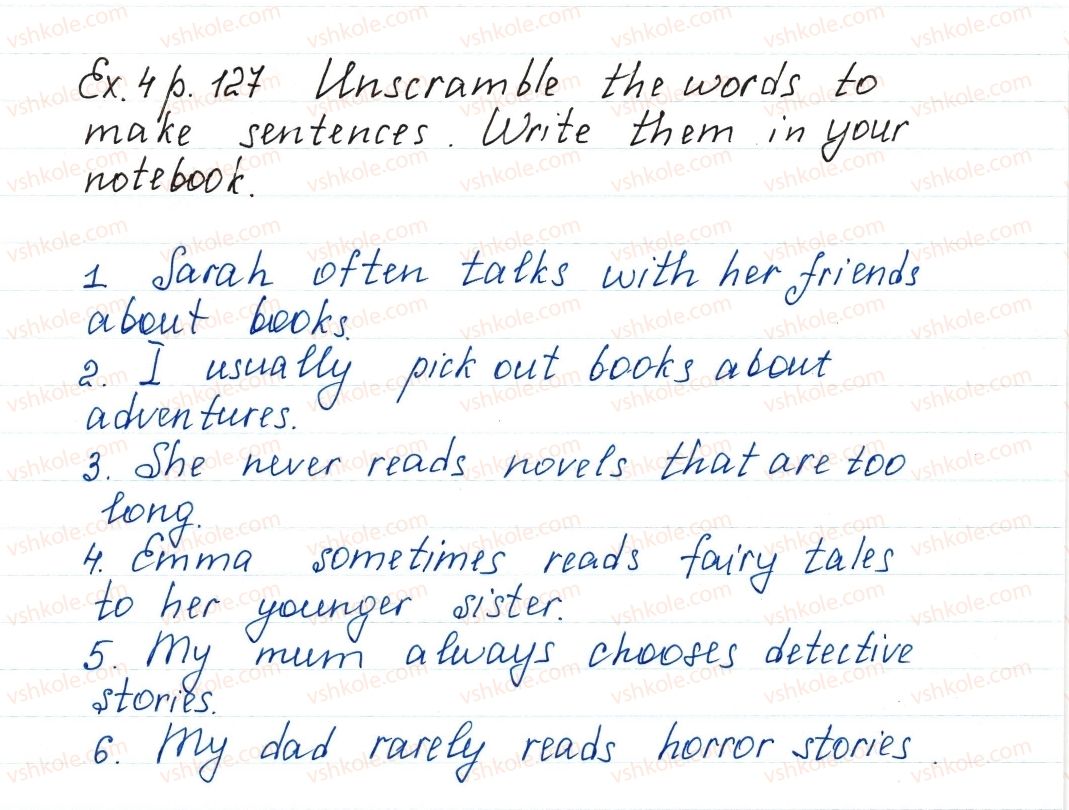 Ex. 4 p. 127 Unscramble the words to
make sentences. Write them in your
notebook.
1 Sarah often talks with her friends
about books.
2. I usually pick out books about
adventures.
3. She never reads novels that are too
long.
4. Emma sometimes reads fairy tales
to her younger sister.
5. My mum always chooses detective
stories.
6. My dad rarely reads horror stories.
vshkole.com